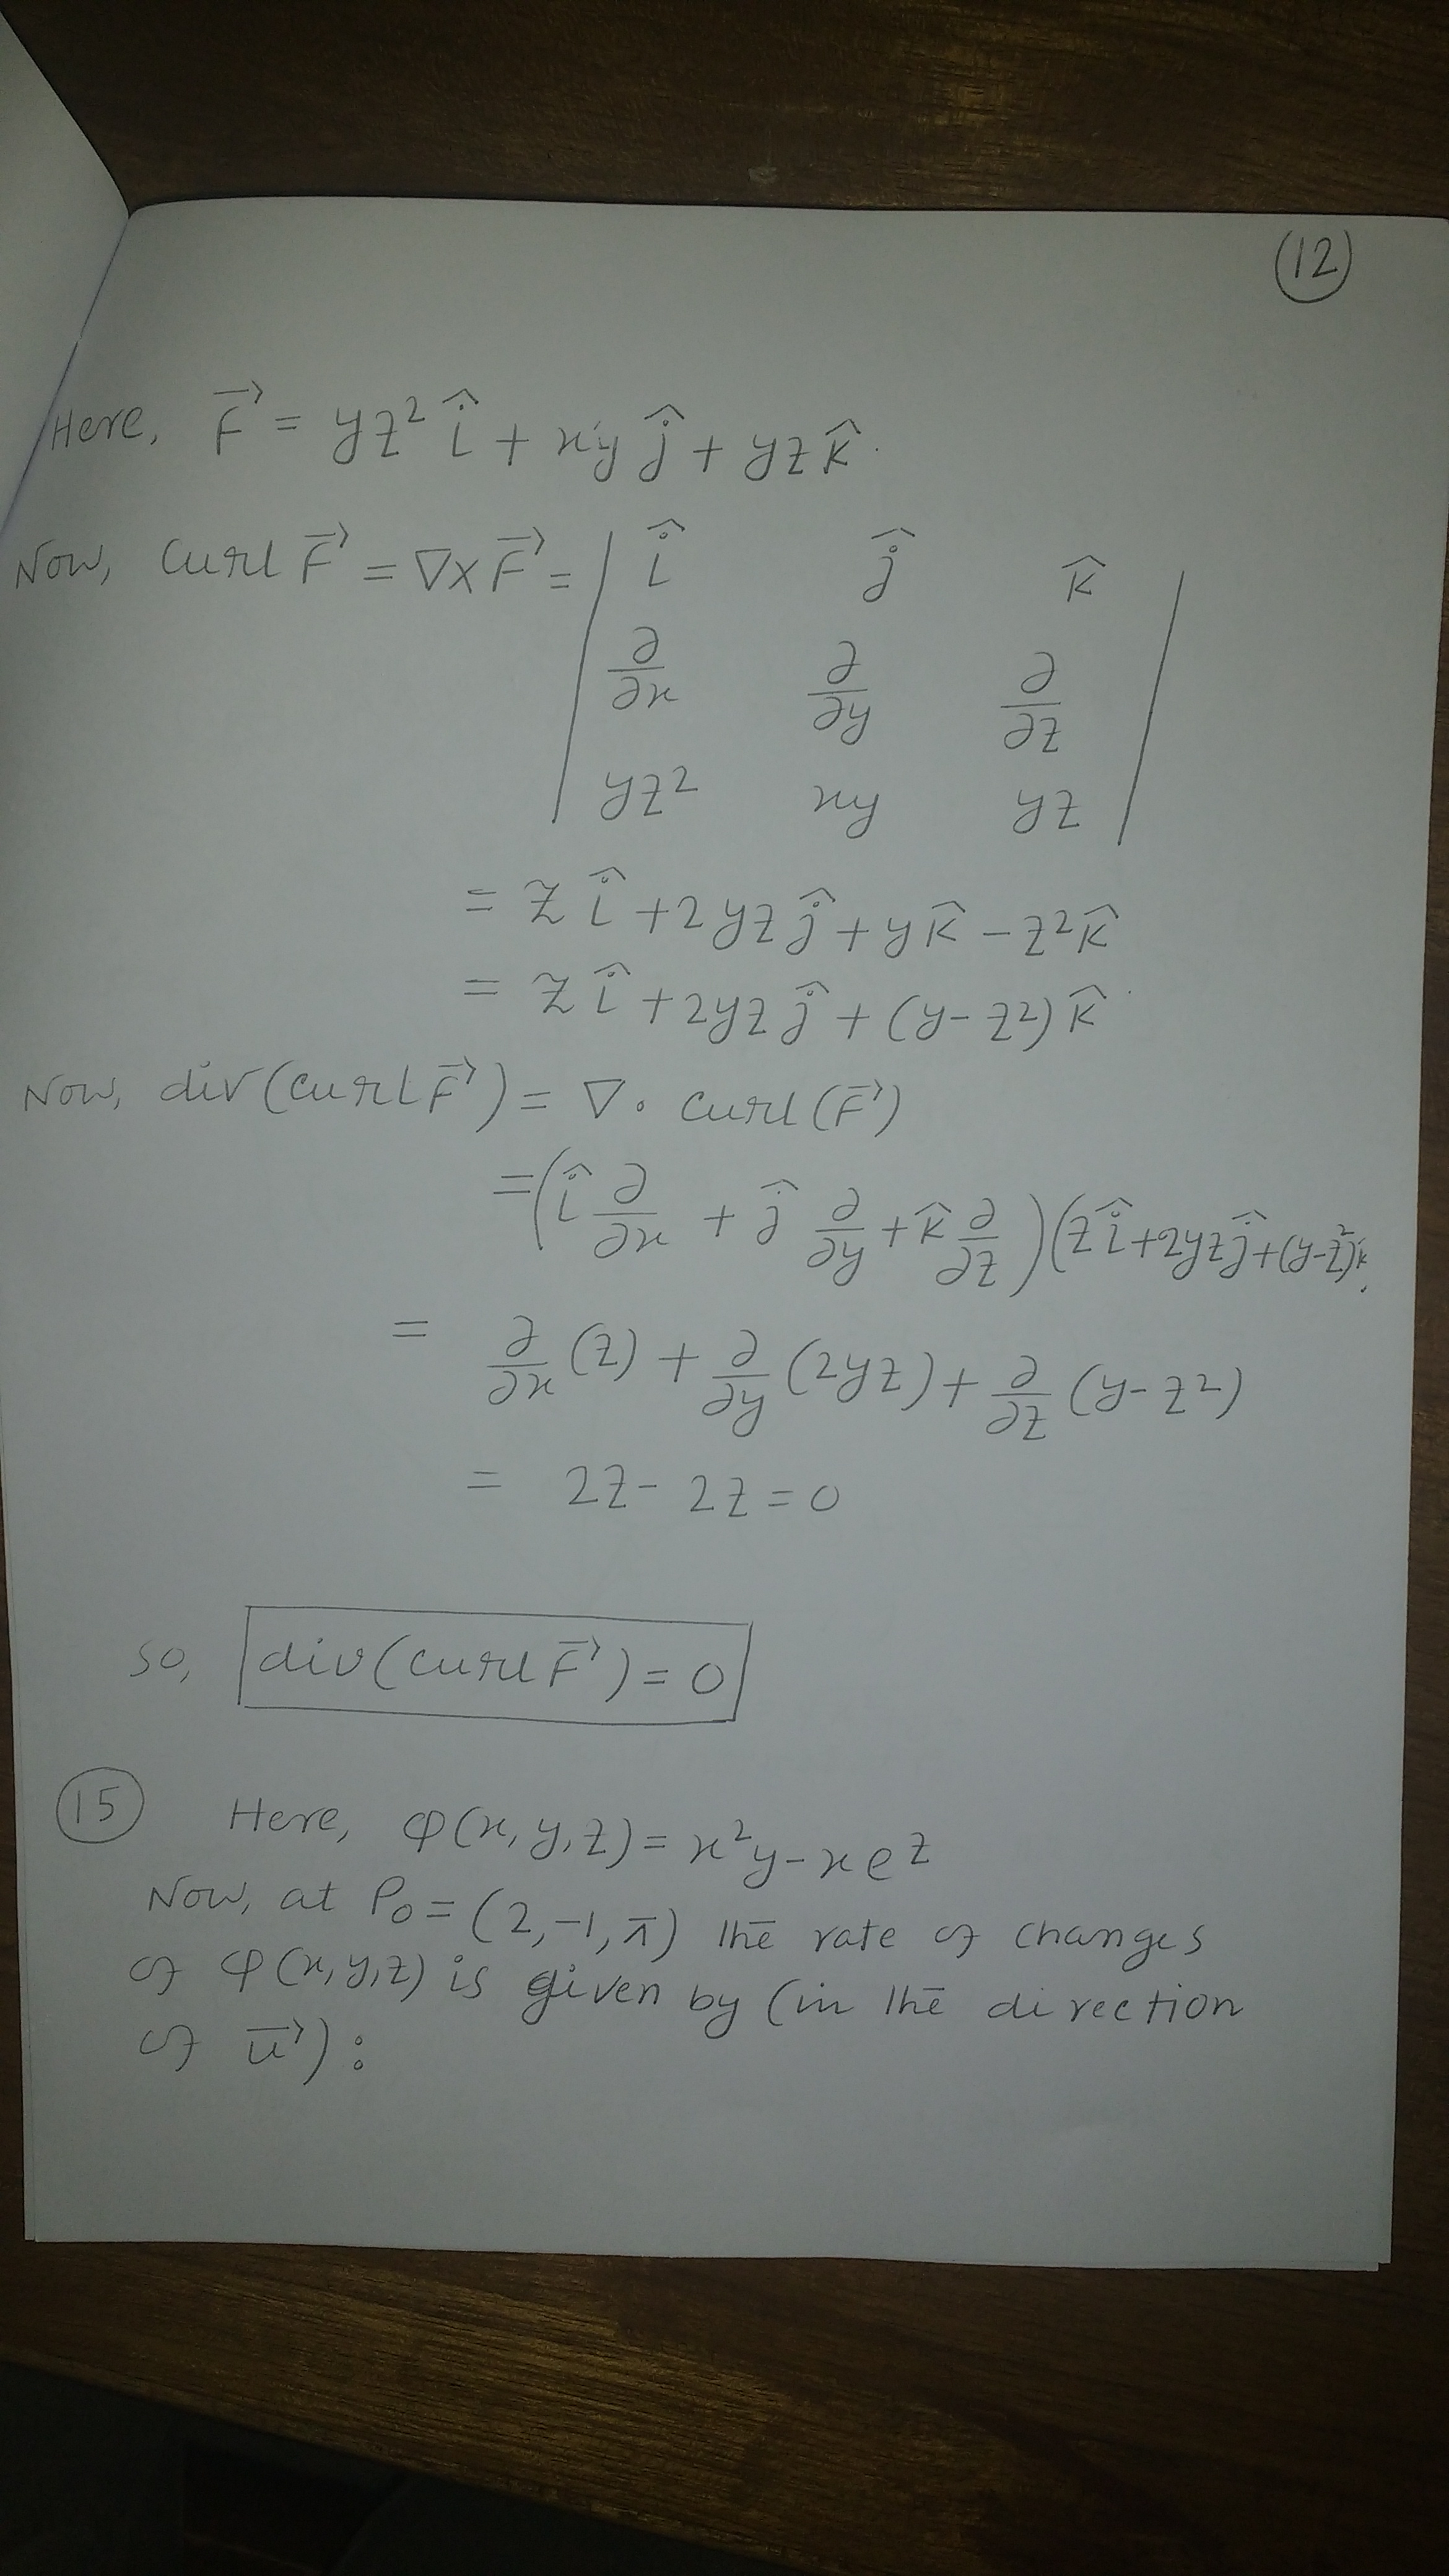 (12)
Here, F⃗ = yz² î + xy ĵ + yz k̂.
Now, Curl F⃗ = ∇×F⃗ = | î ĵ k̂ |
∂/∂x ∂/∂y ∂/∂z
yz² xy yz
= z î + 2yz ĵ + y k̂ − z² k̂
= z î + 2yz ĵ + (y − z²) k̂
Now, div(Curl F⃗) = ∇ · Curl (F⃗)
= (î ∂/∂x + ĵ ∂/∂y + k̂ ∂/∂z)(z î + 2yz ĵ + (y − z²)k̂.
= ∂/∂x (z) + ∂/∂y (2yz) + ∂/∂z (y − z²)
= 2z − 2z = 0
So, div(Curl F⃗) = 0
(15) Here, φ(x, y, z) = x²y − x e^z
Now, at P₀ = (2, −1, π) the rate of changes
of φ(x, y, z) is given by (in the direction
of u⃗):